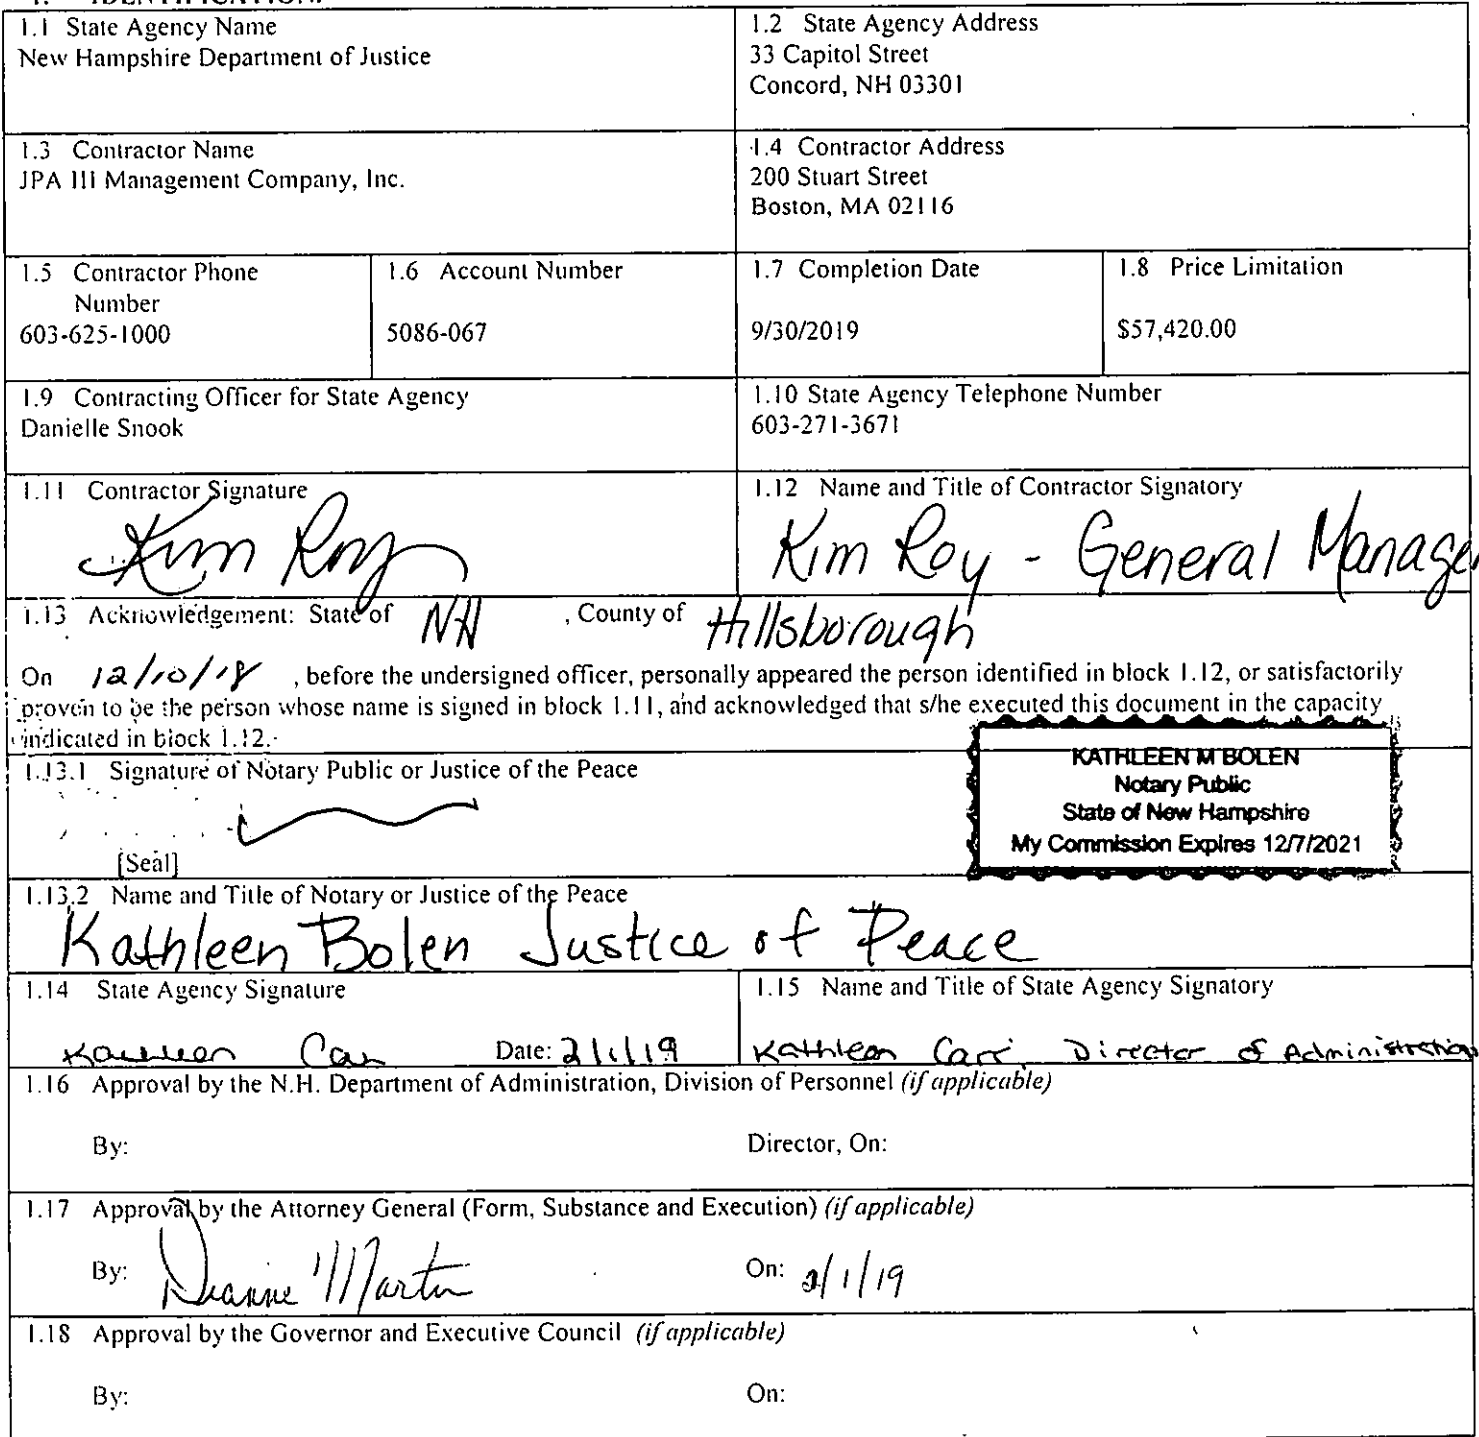 1. IDENTIFICATION.
1.1 State Agency Name
New Hampshire Department of Justice
1.2 State Agency Address
33 Capitol Street
Concord, NH 03301
1.3 Contractor Name
JPA III Management Company, Inc.
1.4 Contractor Address
200 Stuart Street
Boston, MA 02116
1.5 Contractor Phone
Number
603-625-1000
1.6 Account Number
5086-067
1.7 Completion Date
9/30/2019
1.8 Price Limitation
$57,420.00
1.9 Contracting Officer for State Agency
Danielle Snook
1.10 State Agency Telephone Number
603-271-3671
1.11 Contractor Signature
Kim Roy
1.12 Name and Title of Contractor Signatory
Kim Roy - General Manager
1.13 Acknowledgement: State of NH , County of Hillsborough
On 12/10/18 , before the undersigned officer, personally appeared the person identified in block 1.12, or satisfactorily
proven to be the person whose name is signed in block 1.11, and acknowledged that s/he executed this document in the capacity
indicated in block 1.12.
1.13.1 Signature of Notary Public or Justice of the Peace
[Seal]
KATHLEEN M BOLEN
Notary Public
State of New Hampshire
My Commission Expires 12/7/2021
1.13.2 Name and Title of Notary or Justice of the Peace
Kathleen Bolen Justice of Peace
1.14 State Agency Signature
Kathleen Carr Date: 2/1/19
1.15 Name and Title of State Agency Signatory
Kathleen Carr Director of Administration
1.16 Approval by the N.H. Department of Administration, Division of Personnel (if applicable)
By: Director, On:
1.17 Approval by the Attorney General (Form, Substance and Execution) (if applicable)
By: Dianne Martin On: 2/1/19
1.18 Approval by the Governor and Executive Council (if applicable)
By: On: